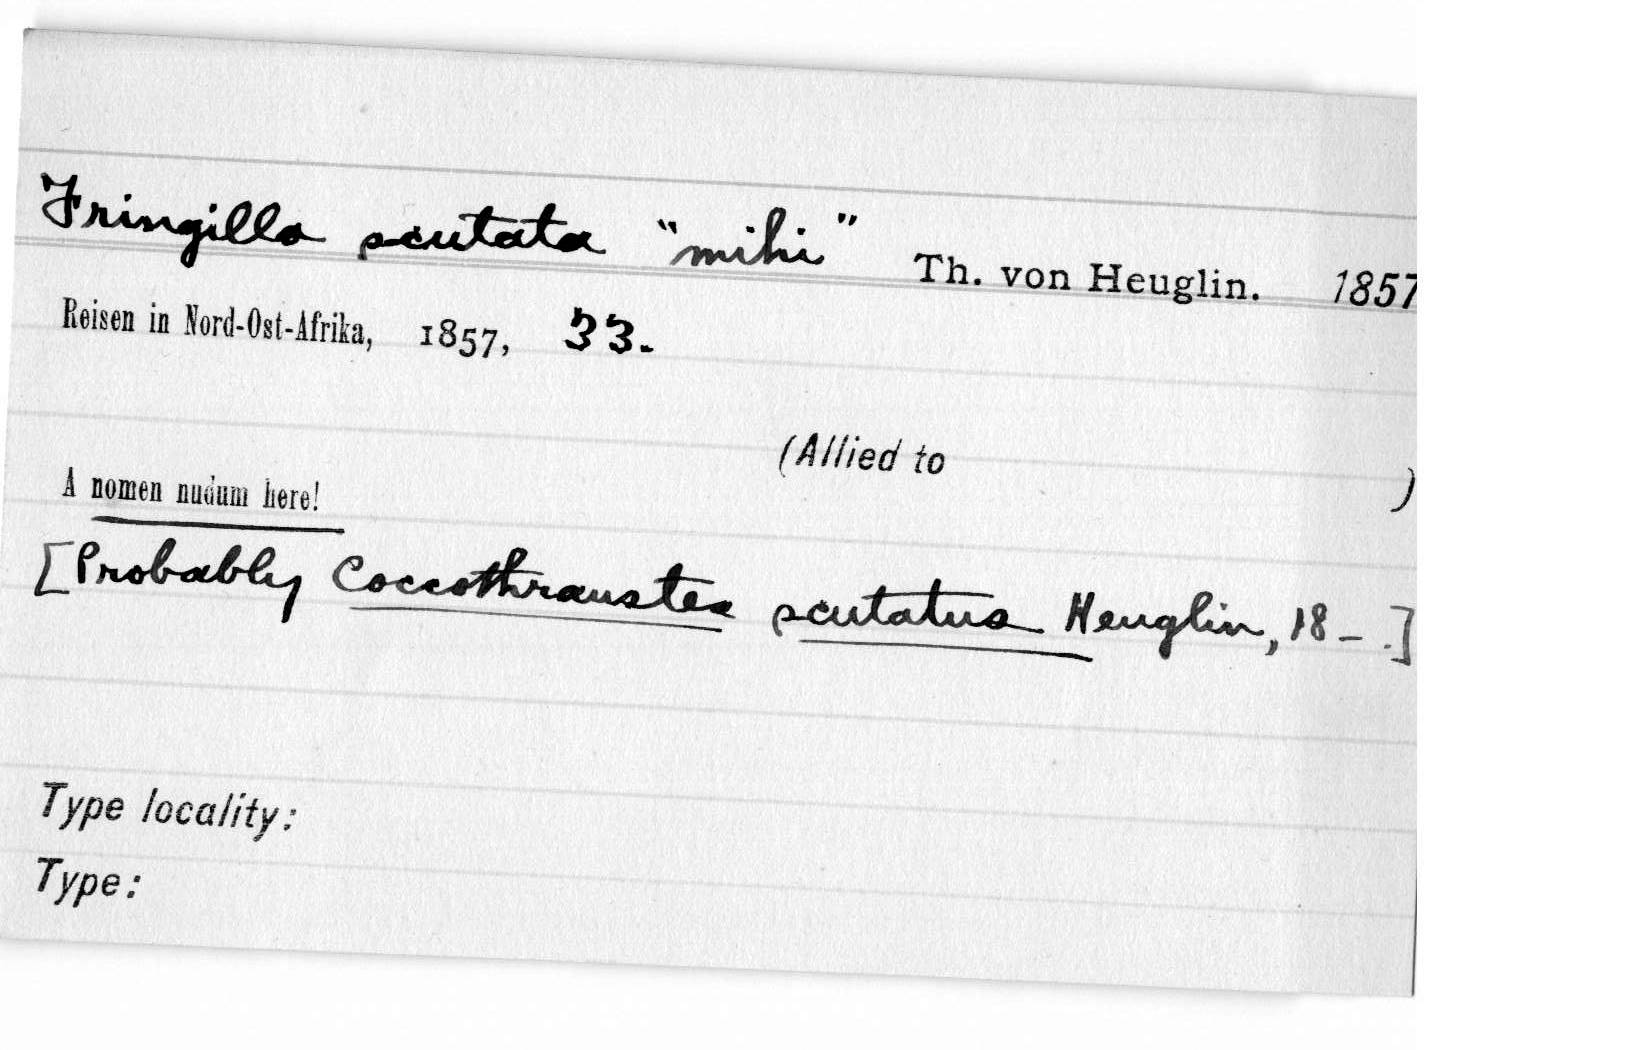 Fringilla scutata "mihi" Th. von Heuglin. 1857
Reisen in Nord-Ost-Afrika, 1857, 33.
(Allied to )
A nomen nudum here!
[Probably Coccothraustes scutatus Heuglin, 18–.]
Type locality:
Type: